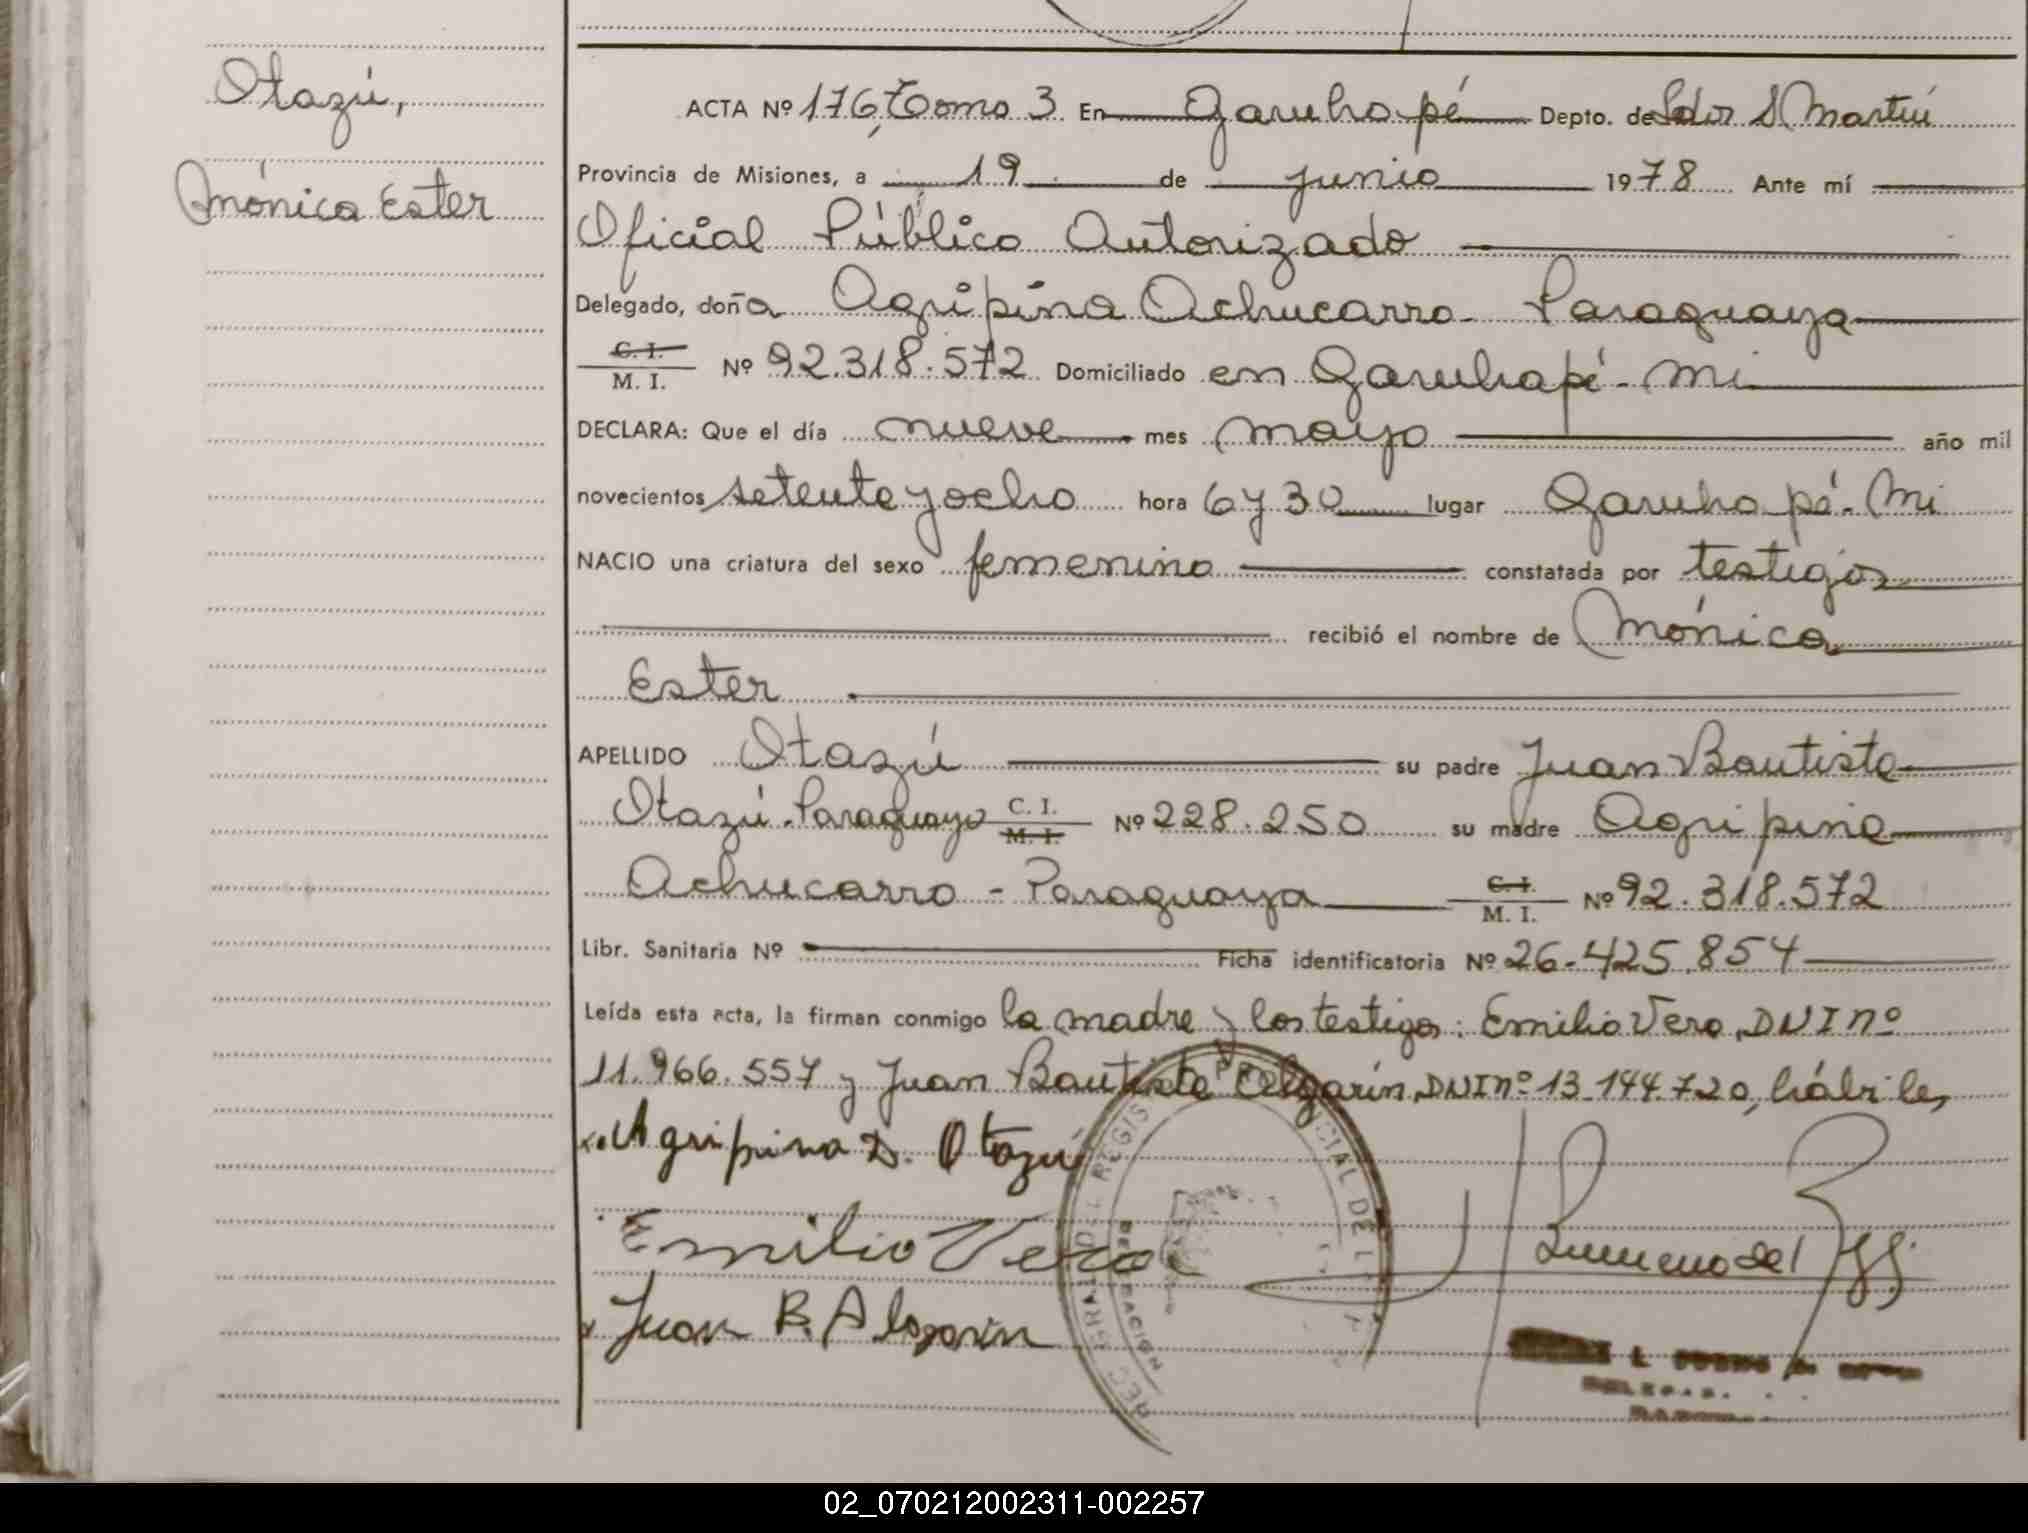 Otazú,
Mónica Ester
ACTA Nº 176, Tomo 3 En Garuhapé Depto. de Ldor S. Martín
Provincia de Misiones, a 19 de junio 1978 Ante mí
Oficial Público Autorizado
Delegado, doña Agripina Achucarro - Paraguaya
C. I. / M. I. Nº 92.318.572 Domiciliado en Garuhapé - Mi
DECLARA: Que el día nueve mes mayo año mil
novecientos setenta y ocho hora 6 y 30 lugar Garuhapé - Mi
NACIO una criatura del sexo femenino constatada por testigos
recibió el nombre de Mónica
Ester
APELLIDO Otazú su padre Juan Bautista
Otazú - Paraguayo C. I. / M. I. Nº 228.250 su madre Agripina
Achucarro - Paraguaya C. I. / M. I. Nº 92.318.572
Libr. Sanitaria Nº Ficha identificatoria Nº 26.425.854
Leída esta acta, la firman conmigo la madre y los testigos: Emilio Vera, DNI nº
11.966.557 y Juan Bautista DNI nº 13.144.720, hábiles
Agripina D. Otazú
Emilio Vera
Juan B. Alogarin
02_070212002311-002257